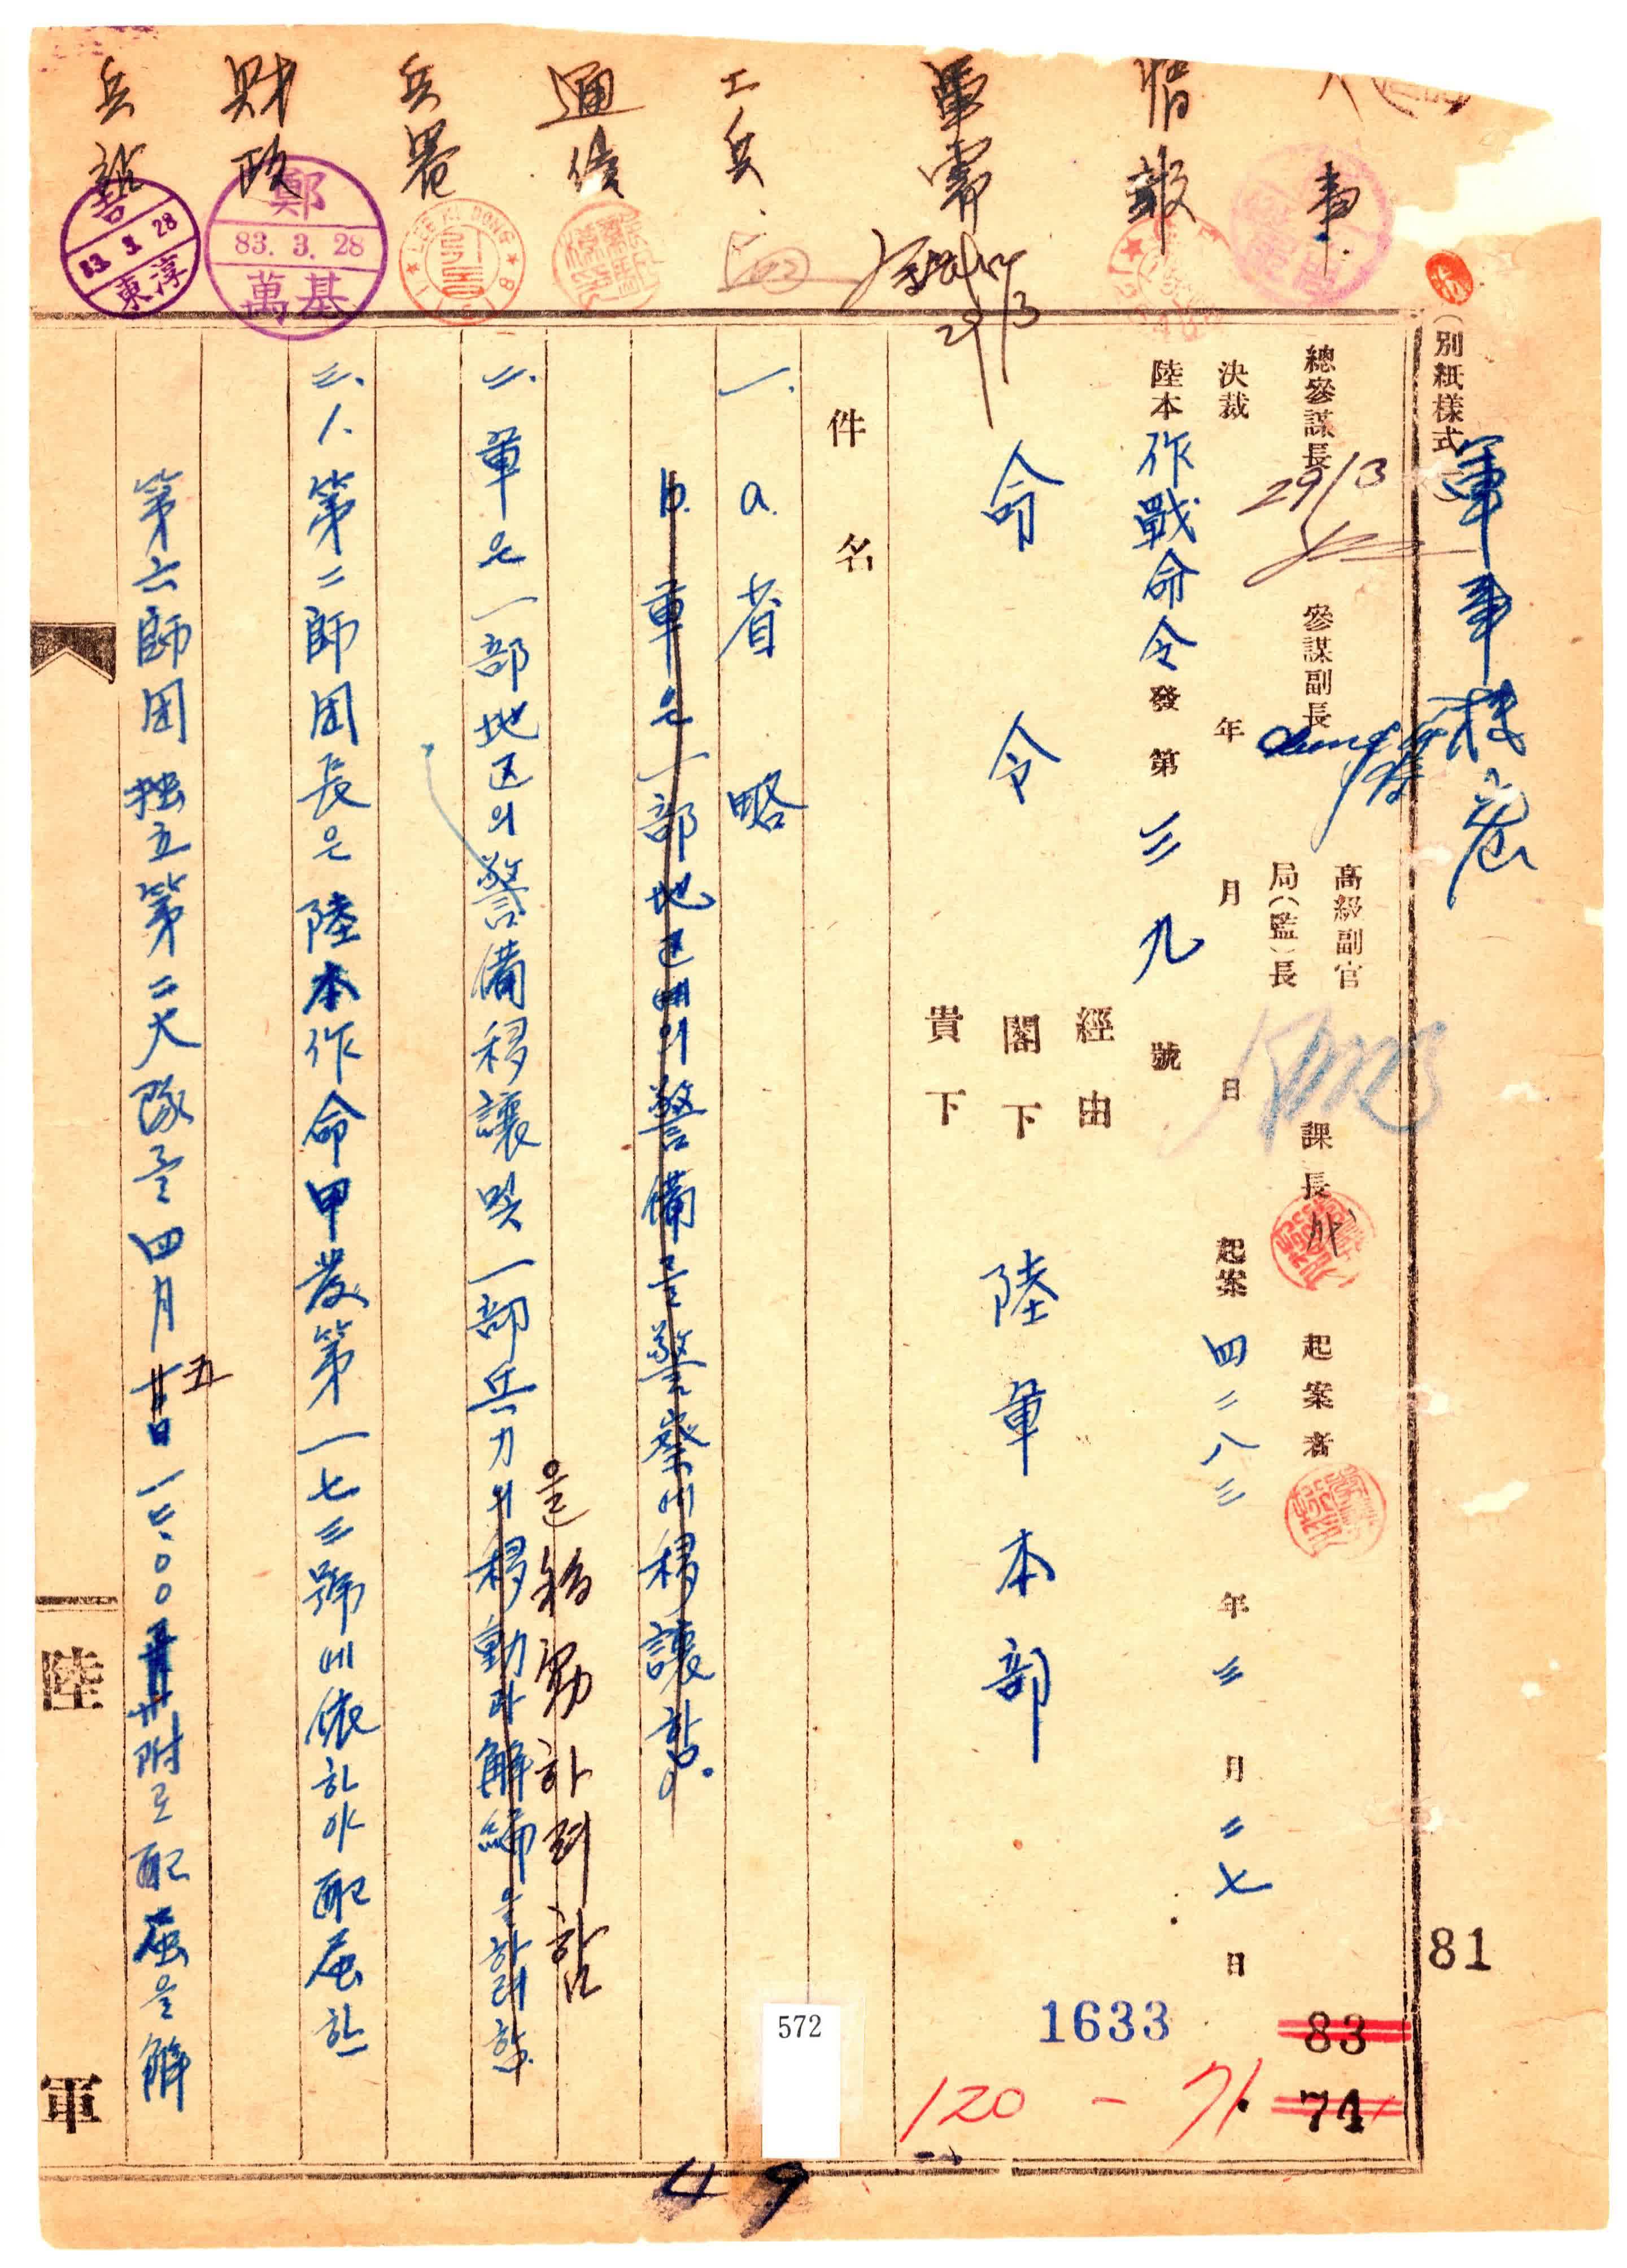 軍事機密
(別紙樣式
總參謀長 29/3 參謀副長 高級副官
局(監)長 課長 起案者
決裁 年 月 日 起案 四二八三 年 三 月 二七 日
陸本作戰命令發第三九號
經由
命令 閣下 陸軍本部
貴下
件名
一. a. 省略
b. 軍은 一部地区에의 警備를 警察에 移讓함.
二. 軍은 一部地区의 警備移讓및 一部兵力의 移動과 解編을 할려함.
을 移動하려함
三. 1. 第二師団長은 陸本作命甲發第一七三號에 依하야 配属한
第六師団 独立第二大隊를 四月廿五日 一二.〇〇 附로 配属을 解
人事.
情報
軍需
29/3
工兵.
通信
兵器
財政
兵站
LEE KI DONG
鄭
83. 3. 28
萬基
83. 3. 28
東淳
陸
軍
81
83
74
1633
120 - 71.
572
49